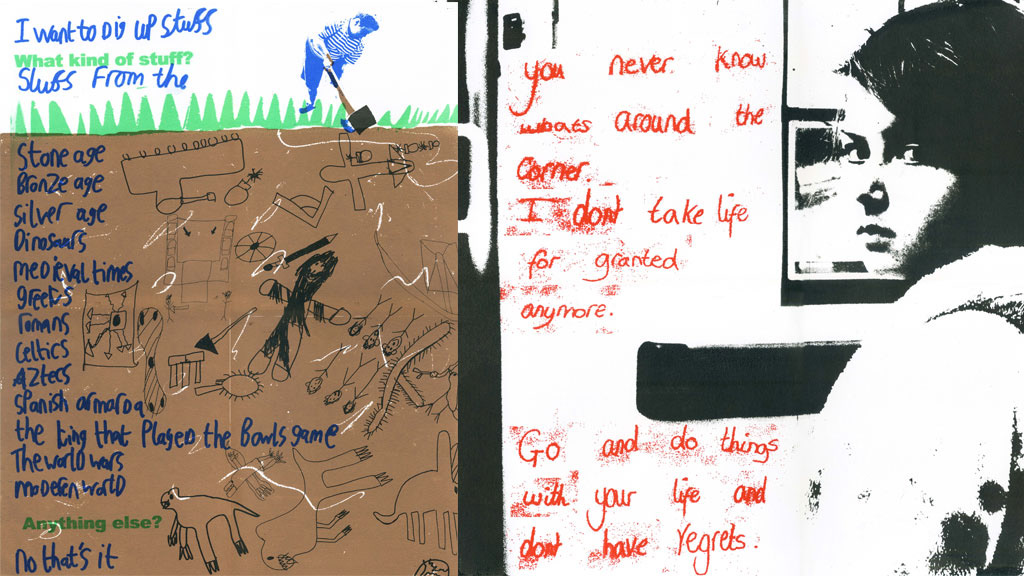 I want to Dig UP Stuffs
What kind of stuff?
Stuffs From the
Stone age
Bronze age
silver age
Dinosaurs
medieval times
greeks
romans
Celtics
Aztecs
spanish armarda
the king that Played the Bowls game
The world wars
moderen world
Anything else?
no that's it
you never know
whats around the
corner.
I dont take life
for granted
anymore.
Go and do things
with your life and
dont have regrets.